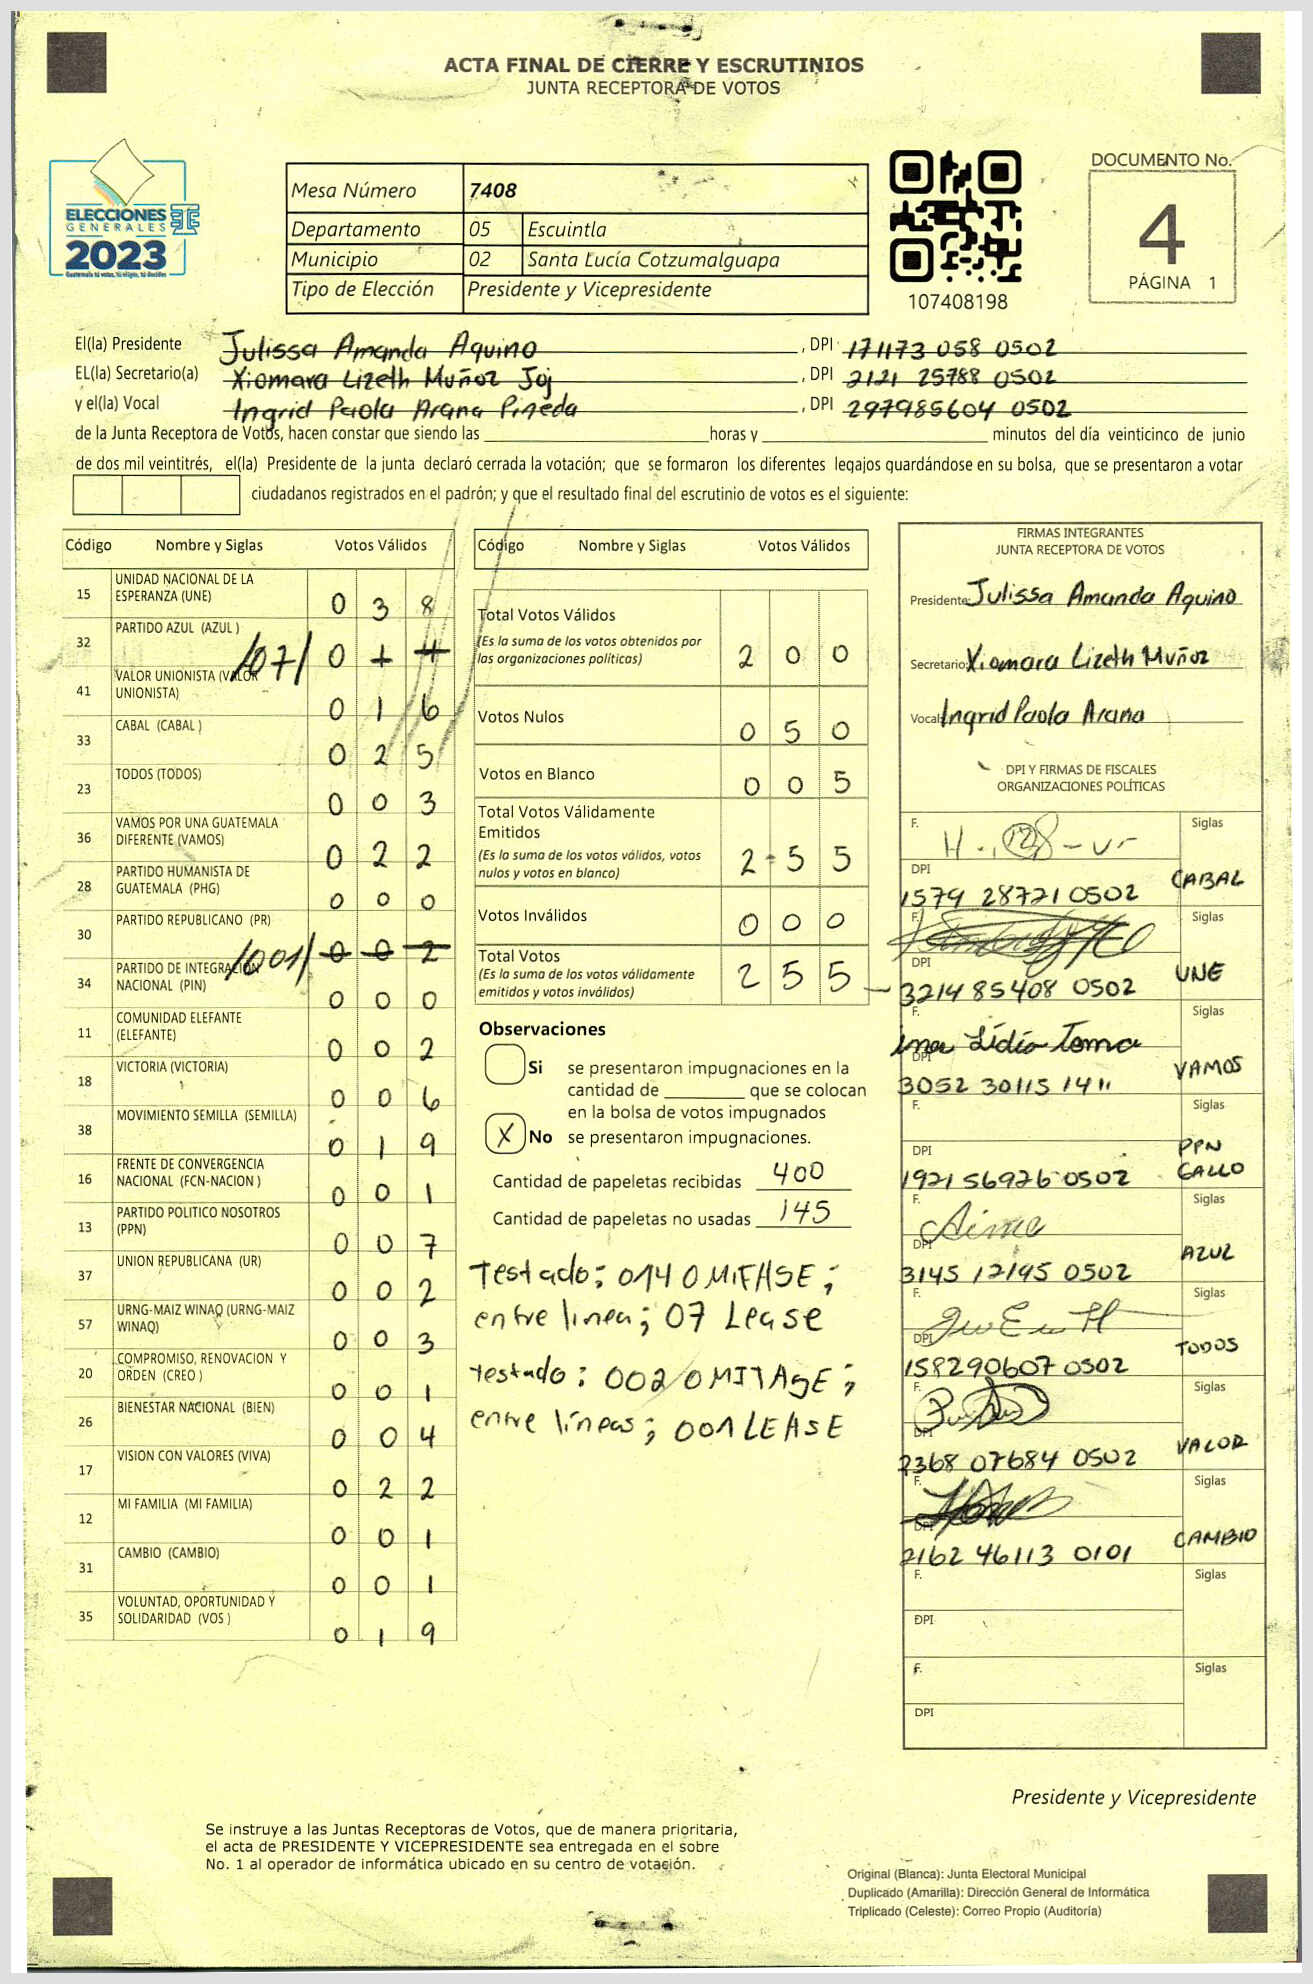 ACTA FINAL DE CIERRE Y ESCRUTINIOS
JUNTA RECEPTORA DE VOTOS
ELECCIONES
GENERALES
2023
Guatemala tú votas, tú eliges, tú decides
Mesa Número 7408
Departamento 05 Escuintla
Municipio 02 Santa Lucía Cotzumalguapa
Tipo de Elección Presidente y Vicepresidente
107408198
DOCUMENTO No.
4
PÁGINA 1
El(la) Presidente Julissa Amanda Aquino, DPI 171173 058 0502
EL(la) Secretario(a) Xiomara Lizeth Muñoz Joj, DPI 2121 25788 0502
y el(la) Vocal Ingrid Paola Arana Pineda, DPI 297985604 0502
de la Junta Receptora de Votos, hacen constar que siendo las ____ horas y ____ minutos del día veinticinco de junio
de dos mil veintitrés, el(la) Presidente de la junta declaró cerrada la votación; que se formaron los diferentes legajos guardándose en su bolsa, que se presentaron a votar
ciudadanos registrados en el padrón; y que el resultado final del escrutinio de votos es el siguiente:
Código Nombre y Siglas Votos Válidos
15 UNIDAD NACIONAL DE LA ESPERANZA (UNE) 0 3 8
32 PARTIDO AZUL (AZUL ) /07/ 0
41 VALOR UNIONISTA (VALOR UNIONISTA) 0 1 6
33 CABAL (CABAL ) 0 2 5
23 TODOS (TODOS) 0 0 3
36 VAMOS POR UNA GUATEMALA DIFERENTE (VAMOS) 0 2 2
28 PARTIDO HUMANISTA DE GUATEMALA (PHG) 0 0 0
30 PARTIDO REPUBLICANO (PR) /001/ 0 0 2
34 PARTIDO DE INTEGRACION NACIONAL (PIN) 0 0 0
11 COMUNIDAD ELEFANTE (ELEFANTE) 0 0 2
18 VICTORIA (VICTORIA) 0 0 6
38 MOVIMIENTO SEMILLA (SEMILLA) 0 1 9
16 FRENTE DE CONVERGENCIA NACIONAL (FCN-NACION ) 0 0 1
13 PARTIDO POLITICO NOSOTROS (PPN) 0 0 7
37 UNION REPUBLICANA (UR) 0 0 2
57 URNG-MAIZ WINAQ (URNG-MAIZ WINAQ) 0 0 3
20 COMPROMISO, RENOVACION Y ORDEN (CREO ) 0 0 1
26 BIENESTAR NACIONAL (BIEN) 0 0 4
17 VISION CON VALORES (VIVA) 0 2 2
12 MI FAMILIA (MI FAMILIA) 0 0 1
31 CAMBIO (CAMBIO) 0 0 1
35 VOLUNTAD, OPORTUNIDAD Y SOLIDARIDAD (VOS ) 0 1 9
Código Nombre y Siglas Votos Válidos
Total Votos Válidos
(Es la suma de los votos obtenidos por las organizaciones políticas) 2 0 0
Votos Nulos 0 5 0
Votos en Blanco 0 0 5
Total Votos Válidamente Emitidos
(Es la suma de los votos válidos, votos nulos y votos en blanco) 2 5 5
Votos Inválidos 0 0 0
Total Votos
(Es la suma de los votos válidamente emitidos y votos inválidos) 2 5 5
Observaciones
Si se presentaron impugnaciones en la
cantidad de ____ que se colocan
en la bolsa de votos impugnados
X No se presentaron impugnaciones.
Cantidad de papeletas recibidas 400
Cantidad de papeletas no usadas 145
Testado; 014 OMITASE;
entre linea; 07 Lease
testado: 002 OMITASE;
entre líneas; 001 LEASE
FIRMAS INTEGRANTES
JUNTA RECEPTORA DE VOTOS
Presidente: Julissa Amanda Aquino
Secretario: Xiomara Lizeth Muñoz
Vocal: Ingrid Paola Arana
DPI Y FIRMAS DE FISCALES
ORGANIZACIONES POLÍTICAS
F. Siglas
DPI 1579 28721 0502 CABAL
F. Siglas
DPI 3214 85408 0502 UNE
F. Lidia Toma Siglas
DPI 3052 30115 1411 VAMOS
F. Siglas
DPI 1921 56926 0502 PPN GALLO
F. Siglas
DPI 3145 12195 0502 AZUL
F. Siglas
DPI 158290607 0502 TODOS
F. Siglas
DPI 2368 07684 0502 VALOR
F. Siglas
DPI 2162 46113 0101 CAMBIO
F. Siglas
DPI
F. Siglas
DPI
Presidente y Vicepresidente
Se instruye a las Juntas Receptoras de Votos, que de manera prioritaria,
el acta de PRESIDENTE Y VICEPRESIDENTE sea entregada en el sobre
No. 1 al operador de informática ubicado en su centro de votación.
Original (Blanca): Junta Electoral Municipal
Duplicado (Amarilla): Dirección General de Informática
Triplicado (Celeste): Correo Propio (Auditoría)